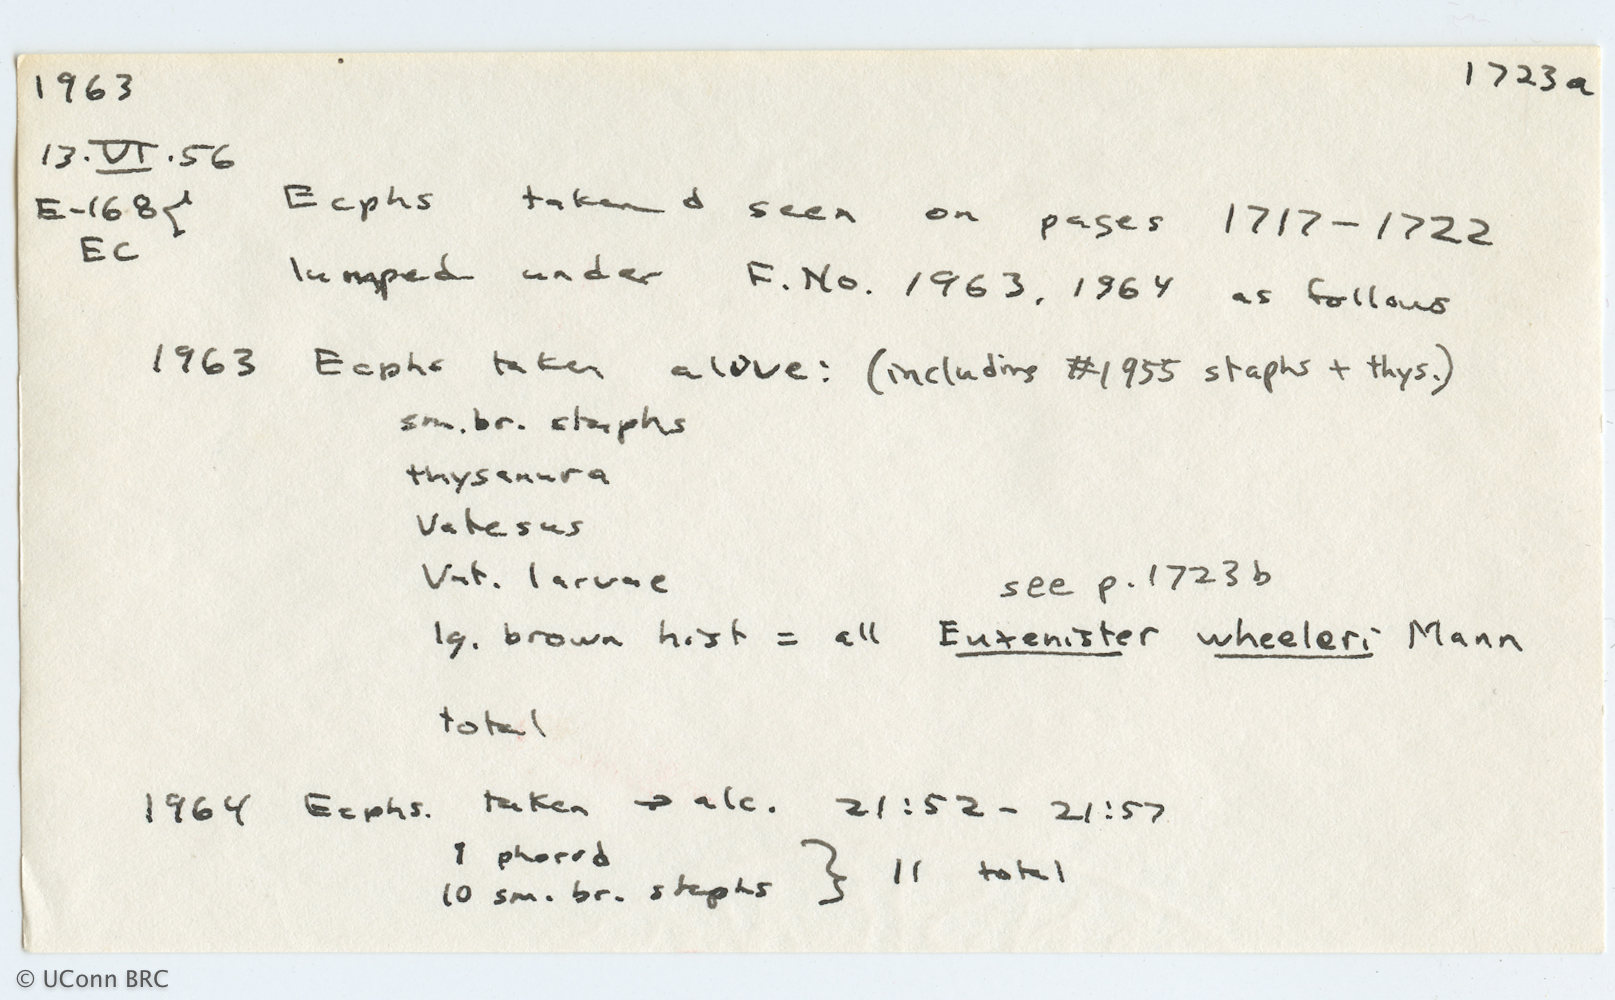 1963 1723a
13.VI.56
E-168{ Ecphs taken d seen on pages 1717-1722
EC
lumped under F.No. 1963, 1964 as follows
1963 Ecphs taken alive: (including #1955 staphs + thys.)
sm.br. staphs
thysanura
Vatesus
Vat. larvae see p.1723b
lg. brown hist = all Euxenister wheeleri Mann
total
1964 Ecphs. taken → alc. 21:52 - 21:57
1 phorid
10 sm. br. staphs } 11 total
© UConn BRC